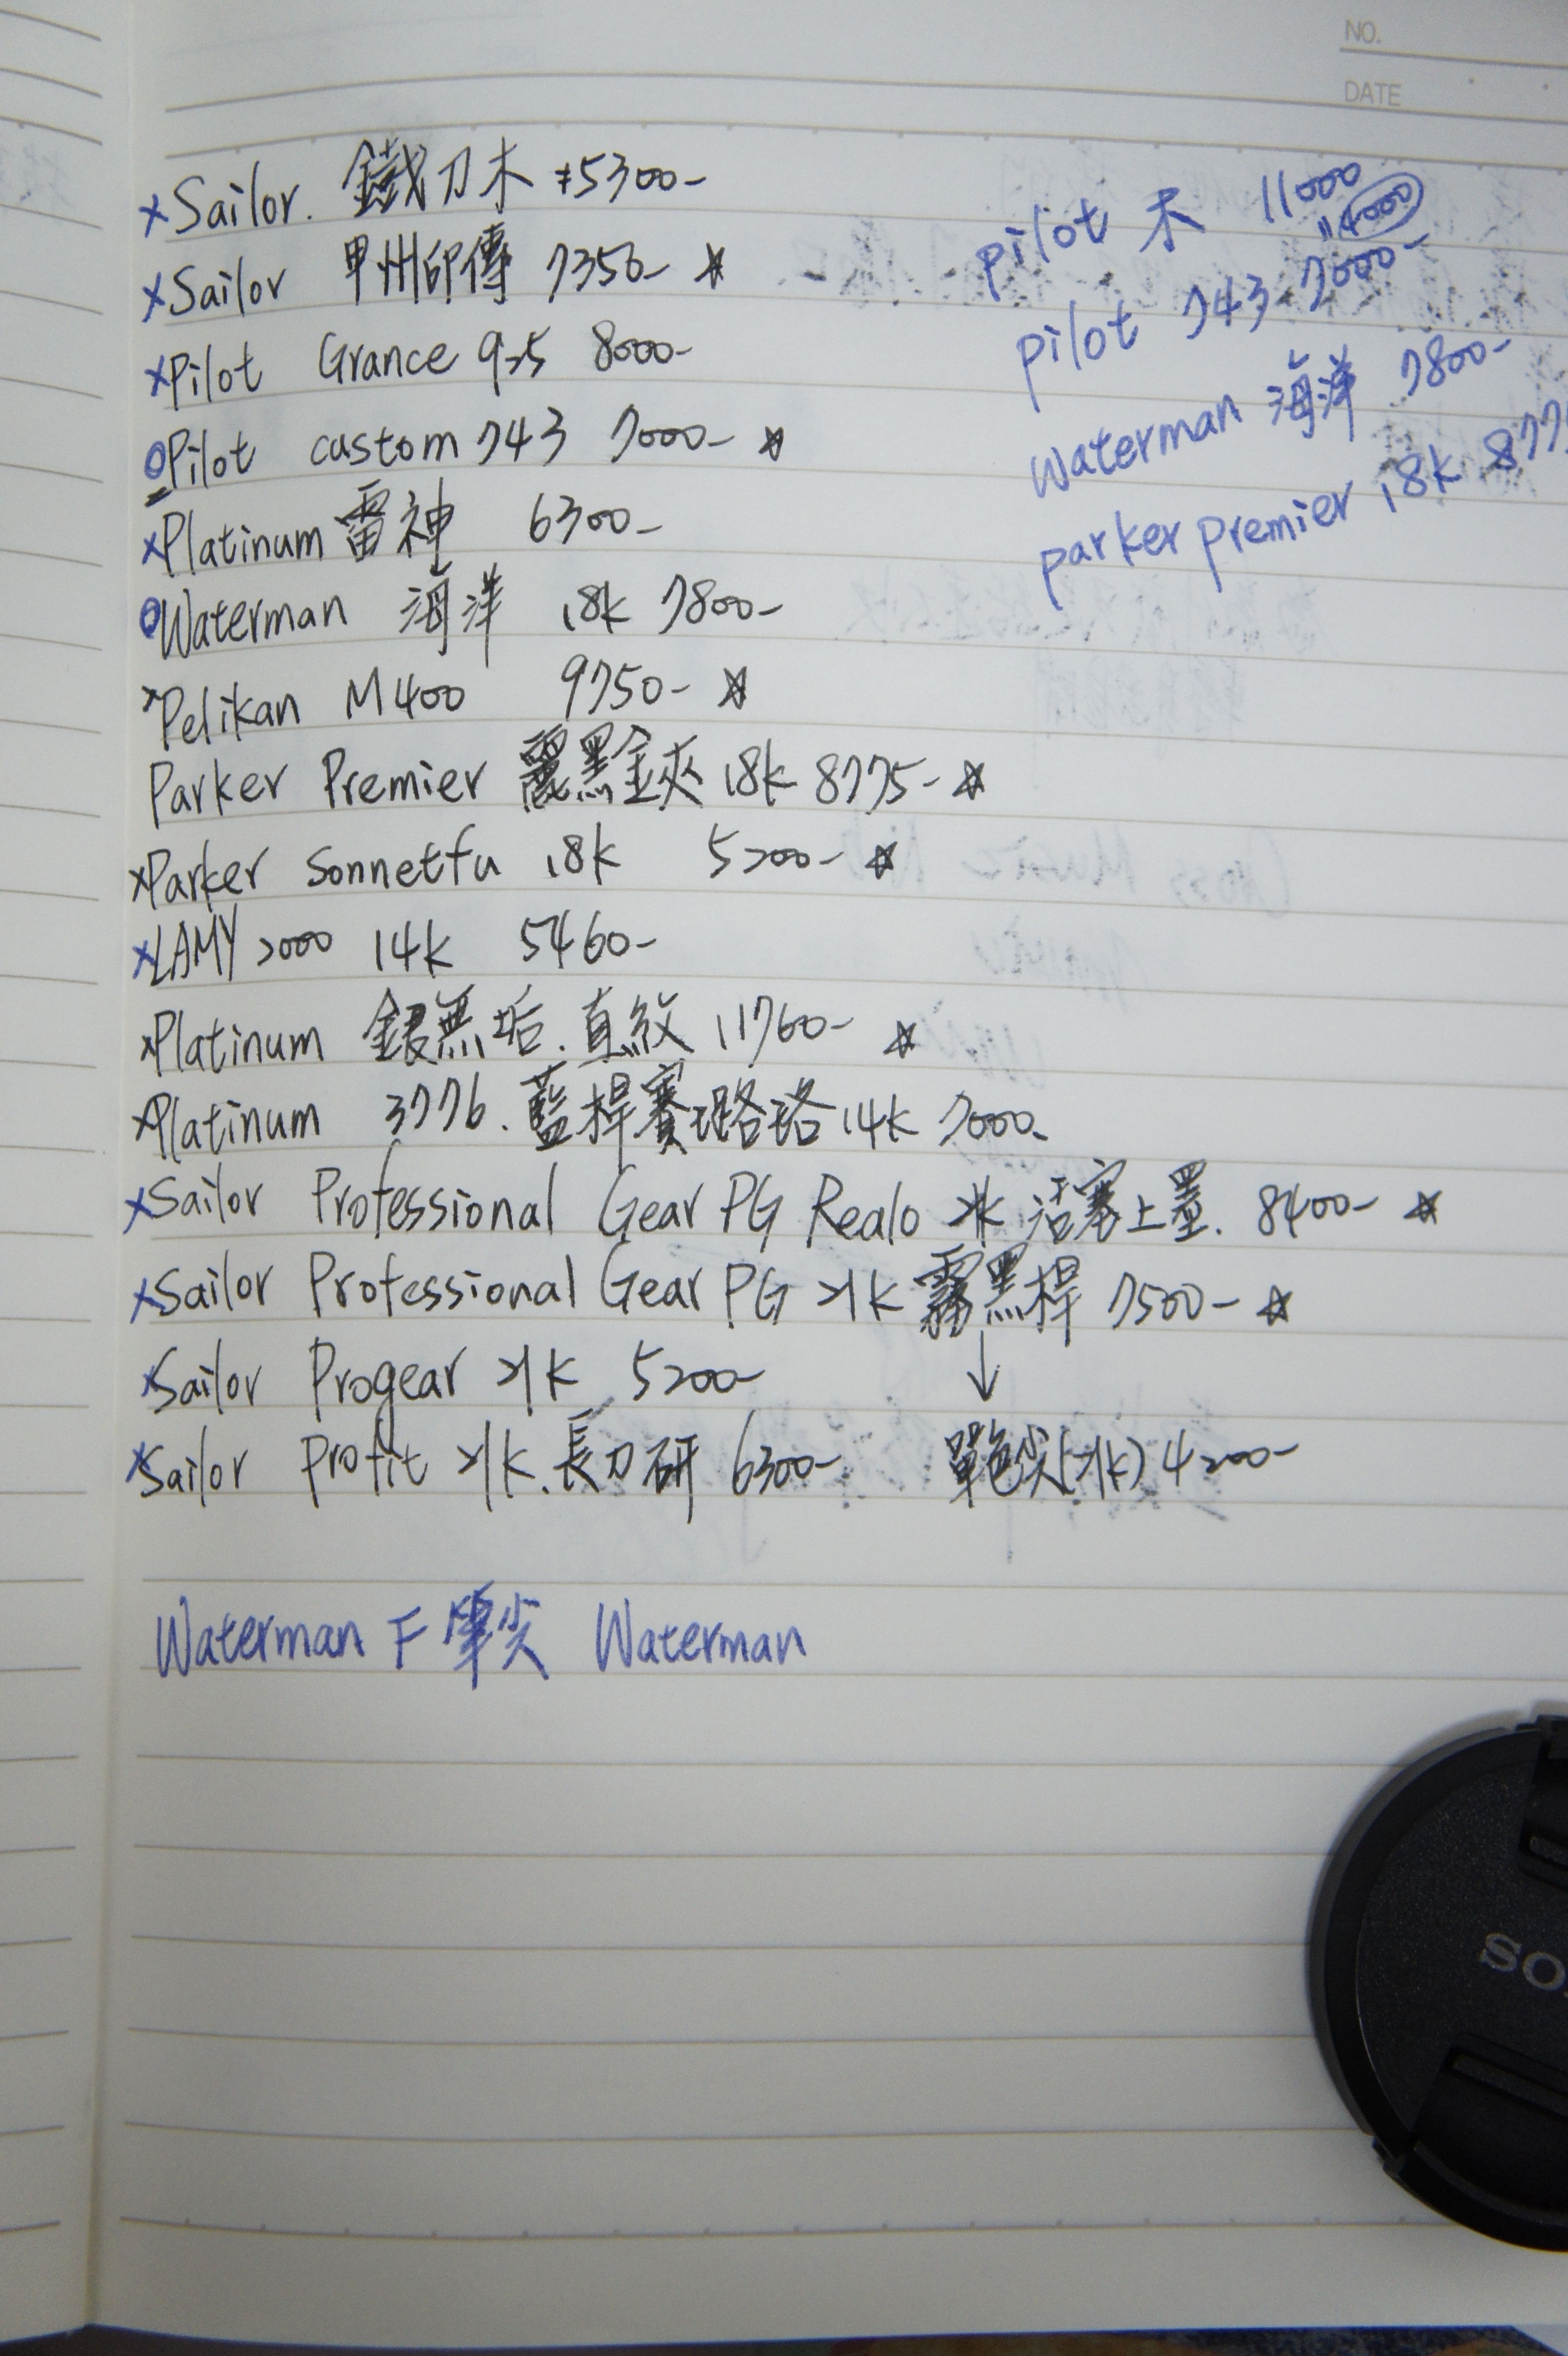 NO.
DATE
×Sailor. 鐵刀木 $5300-
×Sailor 甲州印傳 7350- ☆
×Pilot Grance 925 8000-
○Pilot custom 743 7000- ☆
×Platinum 雷神 6300-
○Waterman 海洋 18k 7800-
×Pelikan M400 9750- ☆
Parker Premier 麗黑金夾 18k 8775- ☆
×Parker Sonnetfu 18k 5200- ☆
×LAMY 2000 14k 5460-
×Platinum 銀無垢.直紋 11760- ☆
×Platinum 3776.藍桿賽璐珞 14k 7000-
×Sailor Professional Gear PG Realo 21k 活塞上墨. 8400- ☆
×Sailor Professional Gear PG 21k 霧黑桿 7500- ☆
↓
×Sailor Progear 21k 5200-
×Sailor Profit 21k.長刀研 6300- 單色尖(21k) 4200-
Waterman F 筆尖 Waterman
pilot 木 11000
14000
pilot 743 7000-
Waterman 海洋 7800-
parker premier 18k 877
SO